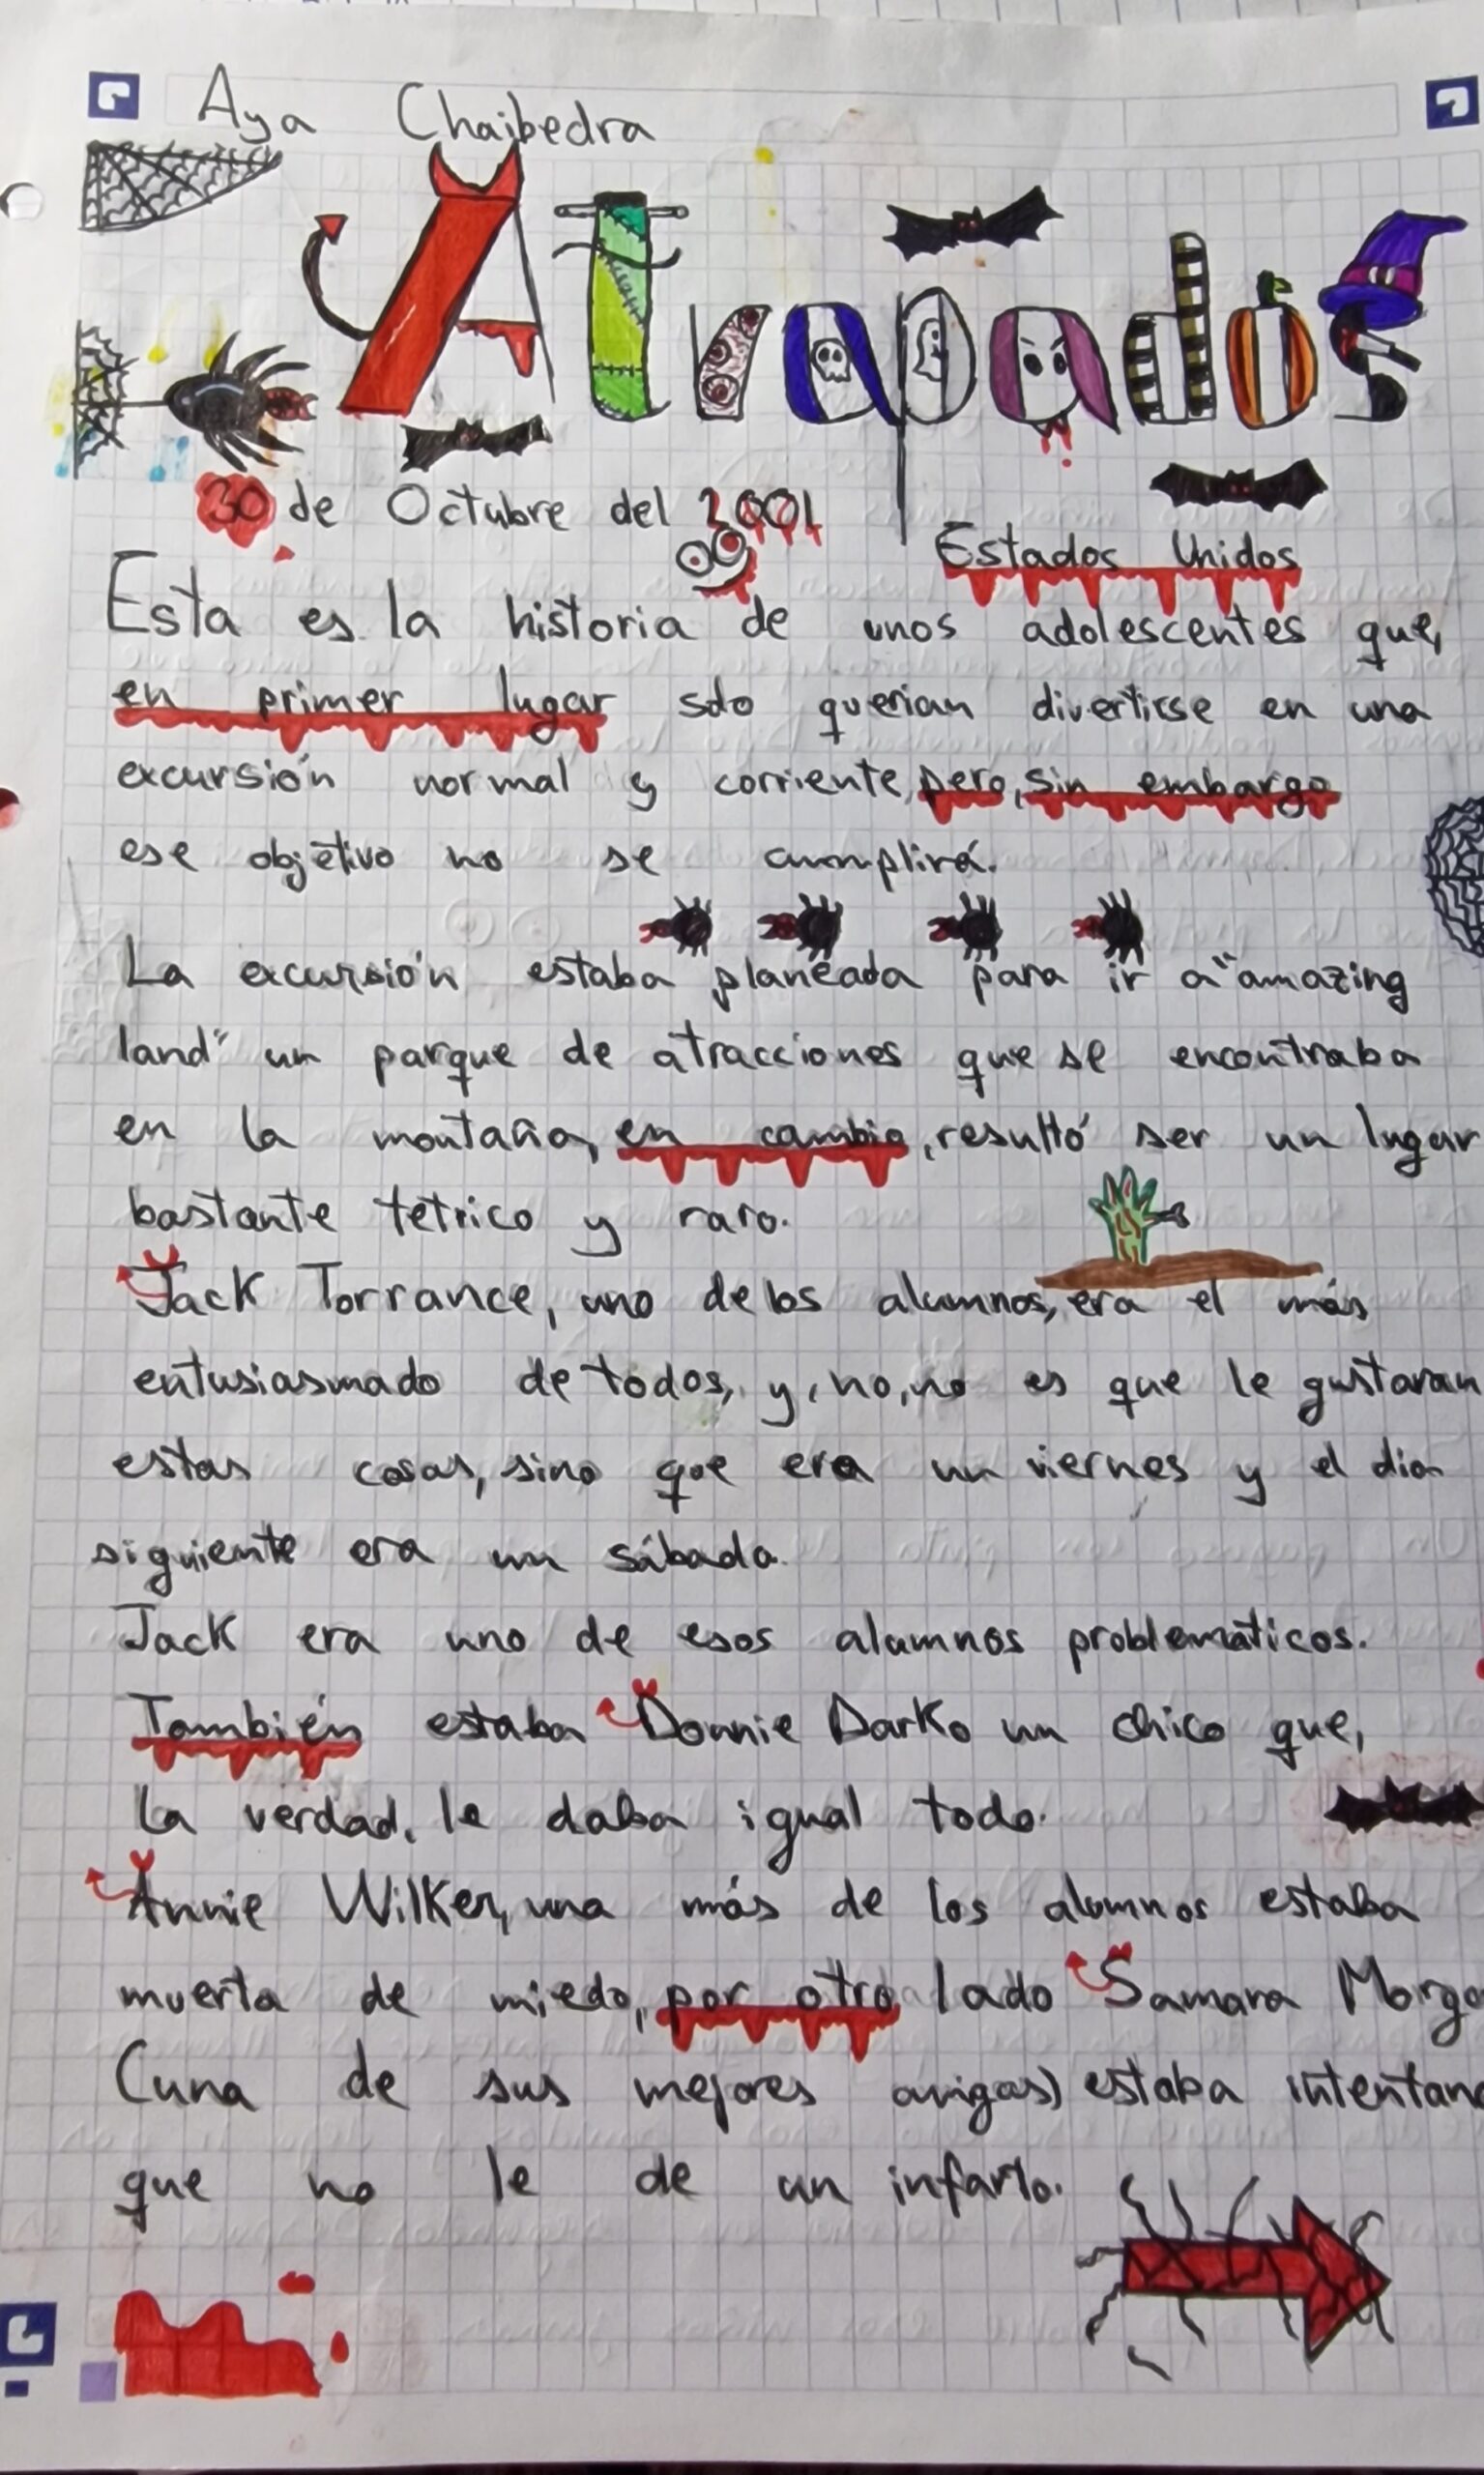 Aya Chaibedra
Atrapados
30 de Octubre del 2001
Estados Unidos
Esta es la historia de unos adolescentes que,
en primer lugar solo querian divertirse en una
excursión normal y corriente, pero, sin embargo
ese objetivo no se cumplirá.
La excursión estaba planeada para ir a "amazing
land" un parque de atracciones que se encontraba
en la montaña, en cambio, resultó ser un lugar
bastante tetrico y raro.
Jack Torrance, uno de los alumnos, era el más
entusiasmado de todos, y, no, no es que le gustaran
estas cosas, sino que era un viernes y el dia
siguiente era un sábado.
Jack era uno de esos alumnos problemáticos.
También estaba Donnie Darko un chico que,
la verdad, le daba igual todo.
Annie Wilker, una más de los alumnos estaba
muerta de miedo, por otro lado Samara Morga
(una de sus mejores amigas) estaba intentan
que no le de un infarto.